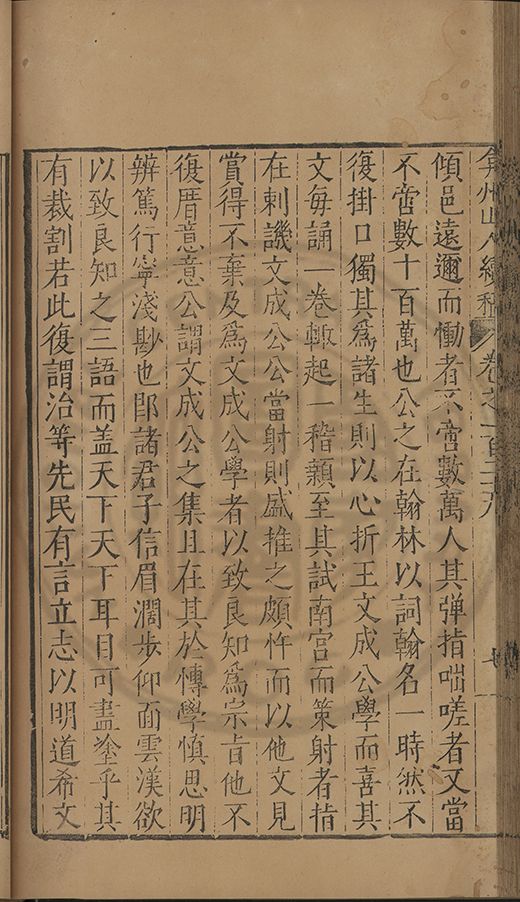 弇州山人續稿 卷之一百三十八
傾邑遠邇而慟者不啻數萬人其彈指咄嗟者又當
不啻數十百萬也公之在翰林以詞翰名一時然不
復掛口獨其爲諸生則以心折王文成公學而喜其
文每誦一卷輙起一稽顙至其試南宫而策射者指
在刺譏文成公公當射則盛推之頗忤而以他文見
賞得不棄及爲文成公學者以致良知爲宗旨他不
復厝意意公謂文成公之集且在其於愽學慎思明
辨篤行寧淺尠也卽諸君子信眉濶步仰面雲漢欲
以致良知之三語而盖天下天下耳目可盡塗乎其
有裁割若此復謂治等先民有言立志以明道希文